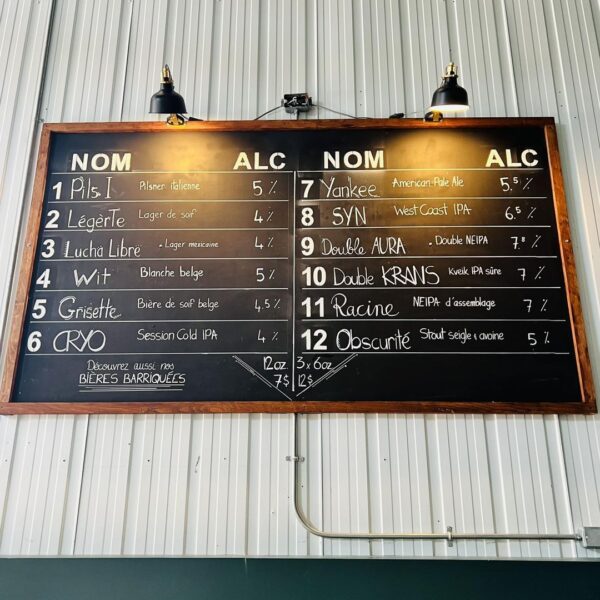 NOM ALC
1 Pils I Pilsner italienne 5 %
2 LégèrTe Lager de soif 4 %
3 Lucha Libre - Lager mexicaine 4 %
4 Wit Blanche belge 5 %
5 Grisette Bière de soif belge 4.5 %
6 CRYO Session Cold IPA 4 %
Découvrez aussi nos
BIÈRES BARRIQUÉES
12oz
7$
NOM ALC
7 Yankee American Pale Ale 5.5 %
8 SYN West Coast IPA 6.5 %
9 Double AURA - Double NEIPA %
10 Double KRANS Kveik IPA sûre 7 %
11 Racine NEIPA d'assemblage 7 %
12 Obscurité Stout seigle & avoine 5 %
3 x 6oz
12$